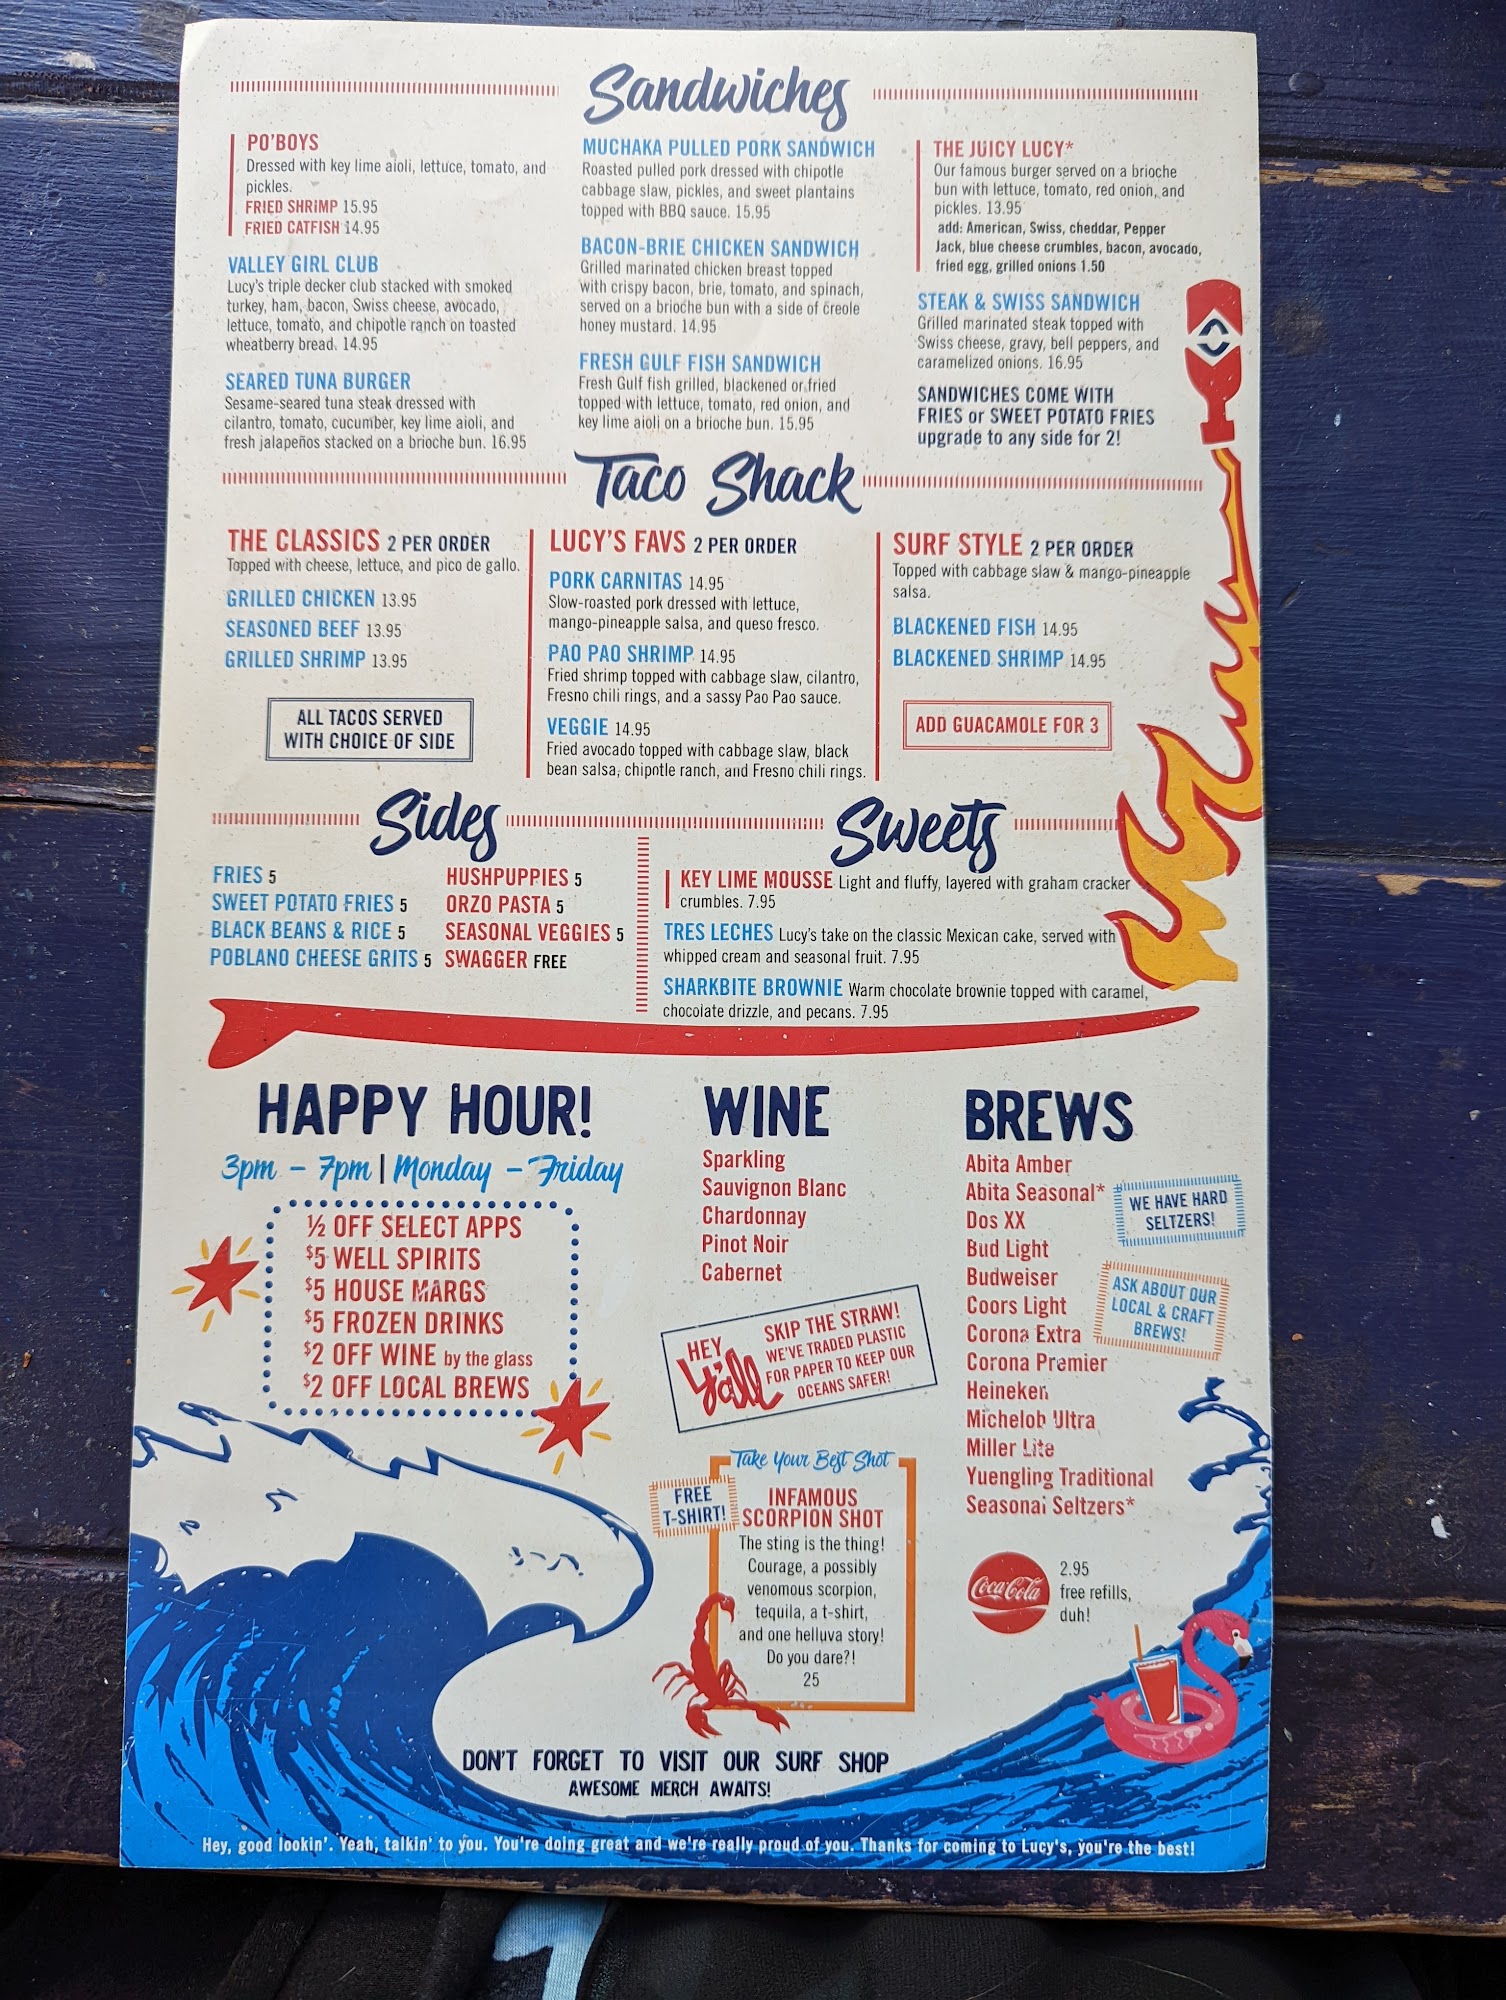 Sandwiches
PO'BOYS
Dressed with key lime aioli, lettuce, tomato, and
pickles.
FRIED SHRIMP 15.95
FRIED CATFISH 14.95
VALLEY GIRL CLUB
Lucy's triple decker club stacked with smoked
turkey, ham, bacon, Swiss cheese, avocado,
lettuce, tomato, and chipotle ranch on toasted
wheatberry bread. 14.95
SEARED TUNA BURGER
Sesame-seared tuna steak dressed with
cilantro, tomato, cucumber, key lime aioli, and
fresh jalapeños stacked on a brioche bun. 16.95
MUCHAKA PULLED PORK SANDWICH
Roasted pulled pork dressed with chipotle
cabbage slaw, pickles, and sweet plantains
topped with BBQ sauce. 15.95
BACON-BRIE CHICKEN SANDWICH
Grilled marinated chicken breast topped
with crispy bacon, brie, tomato, and spinach,
served on a brioche bun with a side of creole
honey mustard. 14.95
FRESH GULF FISH SANDWICH
Fresh Gulf fish grilled, blackened or fried
topped with lettuce, tomato, red onion, and
key lime aioli on a brioche bun. 15.95
THE JUICY LUCY*
Our famous burger served on a brioche
bun with lettuce, tomato, red onion, and
pickles. 13.95
add: American, Swiss, cheddar, Pepper
Jack, blue cheese crumbles, bacon, avocado,
fried egg, grilled onions 1.50
STEAK & SWISS SANDWICH
Grilled marinated steak topped with
Swiss cheese, gravy, bell peppers, and
caramelized onions. 16.95
SANDWICHES COME WITH
FRIES or SWEET POTATO FRIES
upgrade to any side for 2!
Taco Shack
THE CLASSICS 2 PER ORDER
Topped with cheese, lettuce, and pico de gallo.
GRILLED CHICKEN 13.95
SEASONED BEEF 13.95
GRILLED SHRIMP 13.95
ALL TACOS SERVED
WITH CHOICE OF SIDE
LUCY'S FAVS 2 PER ORDER
PORK CARNITAS 14.95
Slow-roasted pork dressed with lettuce,
mango-pineapple salsa, and queso fresco.
PAO PAO SHRIMP 14.95
Fried shrimp topped with cabbage slaw, cilantro,
Fresno chili rings, and a sassy Pao Pao sauce.
VEGGIE 14.95
Fried avocado topped with cabbage slaw, black
bean salsa, chipotle ranch, and Fresno chili rings.
SURF STYLE 2 PER ORDER
Topped with cabbage slaw & mango-pineapple
salsa.
BLACKENED FISH 14.95
BLACKENED SHRIMP 14.95
ADD GUACAMOLE FOR 3
Sides
FRIES 5
SWEET POTATO FRIES 5
BLACK BEANS & RICE 5
POBLANO CHEESE GRITS 5
HUSHPUPPIES 5
ORZO PASTA 5
SEASONAL VEGGIES 5
SWAGGER FREE
Sweets
KEY LIME MOUSSE Light and fluffy, layered with graham cracker
crumbles. 7.95
TRES LECHES Lucy's take on the classic Mexican cake, served with
whipped cream and seasonal fruit. 7.95
SHARKBITE BROWNIE Warm chocolate brownie topped with caramel,
chocolate drizzle, and pecans. 7.95
HAPPY HOUR!
3pm - 7pm | Monday - Friday
½ OFF SELECT APPS
$5 WELL SPIRITS
$5 HOUSE MARGS
$5 FROZEN DRINKS
$2 OFF WINE by the glass
$2 OFF LOCAL BREWS
WINE
Sparkling
Sauvignon Blanc
Chardonnay
Pinot Noir
Cabernet
HEY Y'all
SKIP THE STRAW!
WE'VE TRADED PLASTIC
FOR PAPER TO KEEP OUR
OCEANS SAFER!
Take Your Best Shot
FREE
T-SHIRT!
INFAMOUS
SCORPION SHOT
The sting is the thing!
Courage, a possibly
venomous scorpion,
tequila, a t-shirt,
and one helluva story!
Do you dare?!
25
BREWS
Abita Amber
Abita Seasonal*
Dos XX
Bud Light
Budweiser
Coors Light
Corona Extra
Corona Premier
Heineken
Michelob Ultra
Miller Lite
Yuengling Traditional
Seasonal Seltzers*
WE HAVE HARD
SELTZERS!
ASK ABOUT OUR
LOCAL & CRAFT
BREWS!
Coca-Cola
2.95
free refills,
duh!
DON'T FORGET TO VISIT OUR SURF SHOP
AWESOME MERCH AWAITS!
Hey, good lookin'. Yeah, talkin' to you. You're doing great and we're really proud of you. Thanks for coming to Lucy's, you're the best!